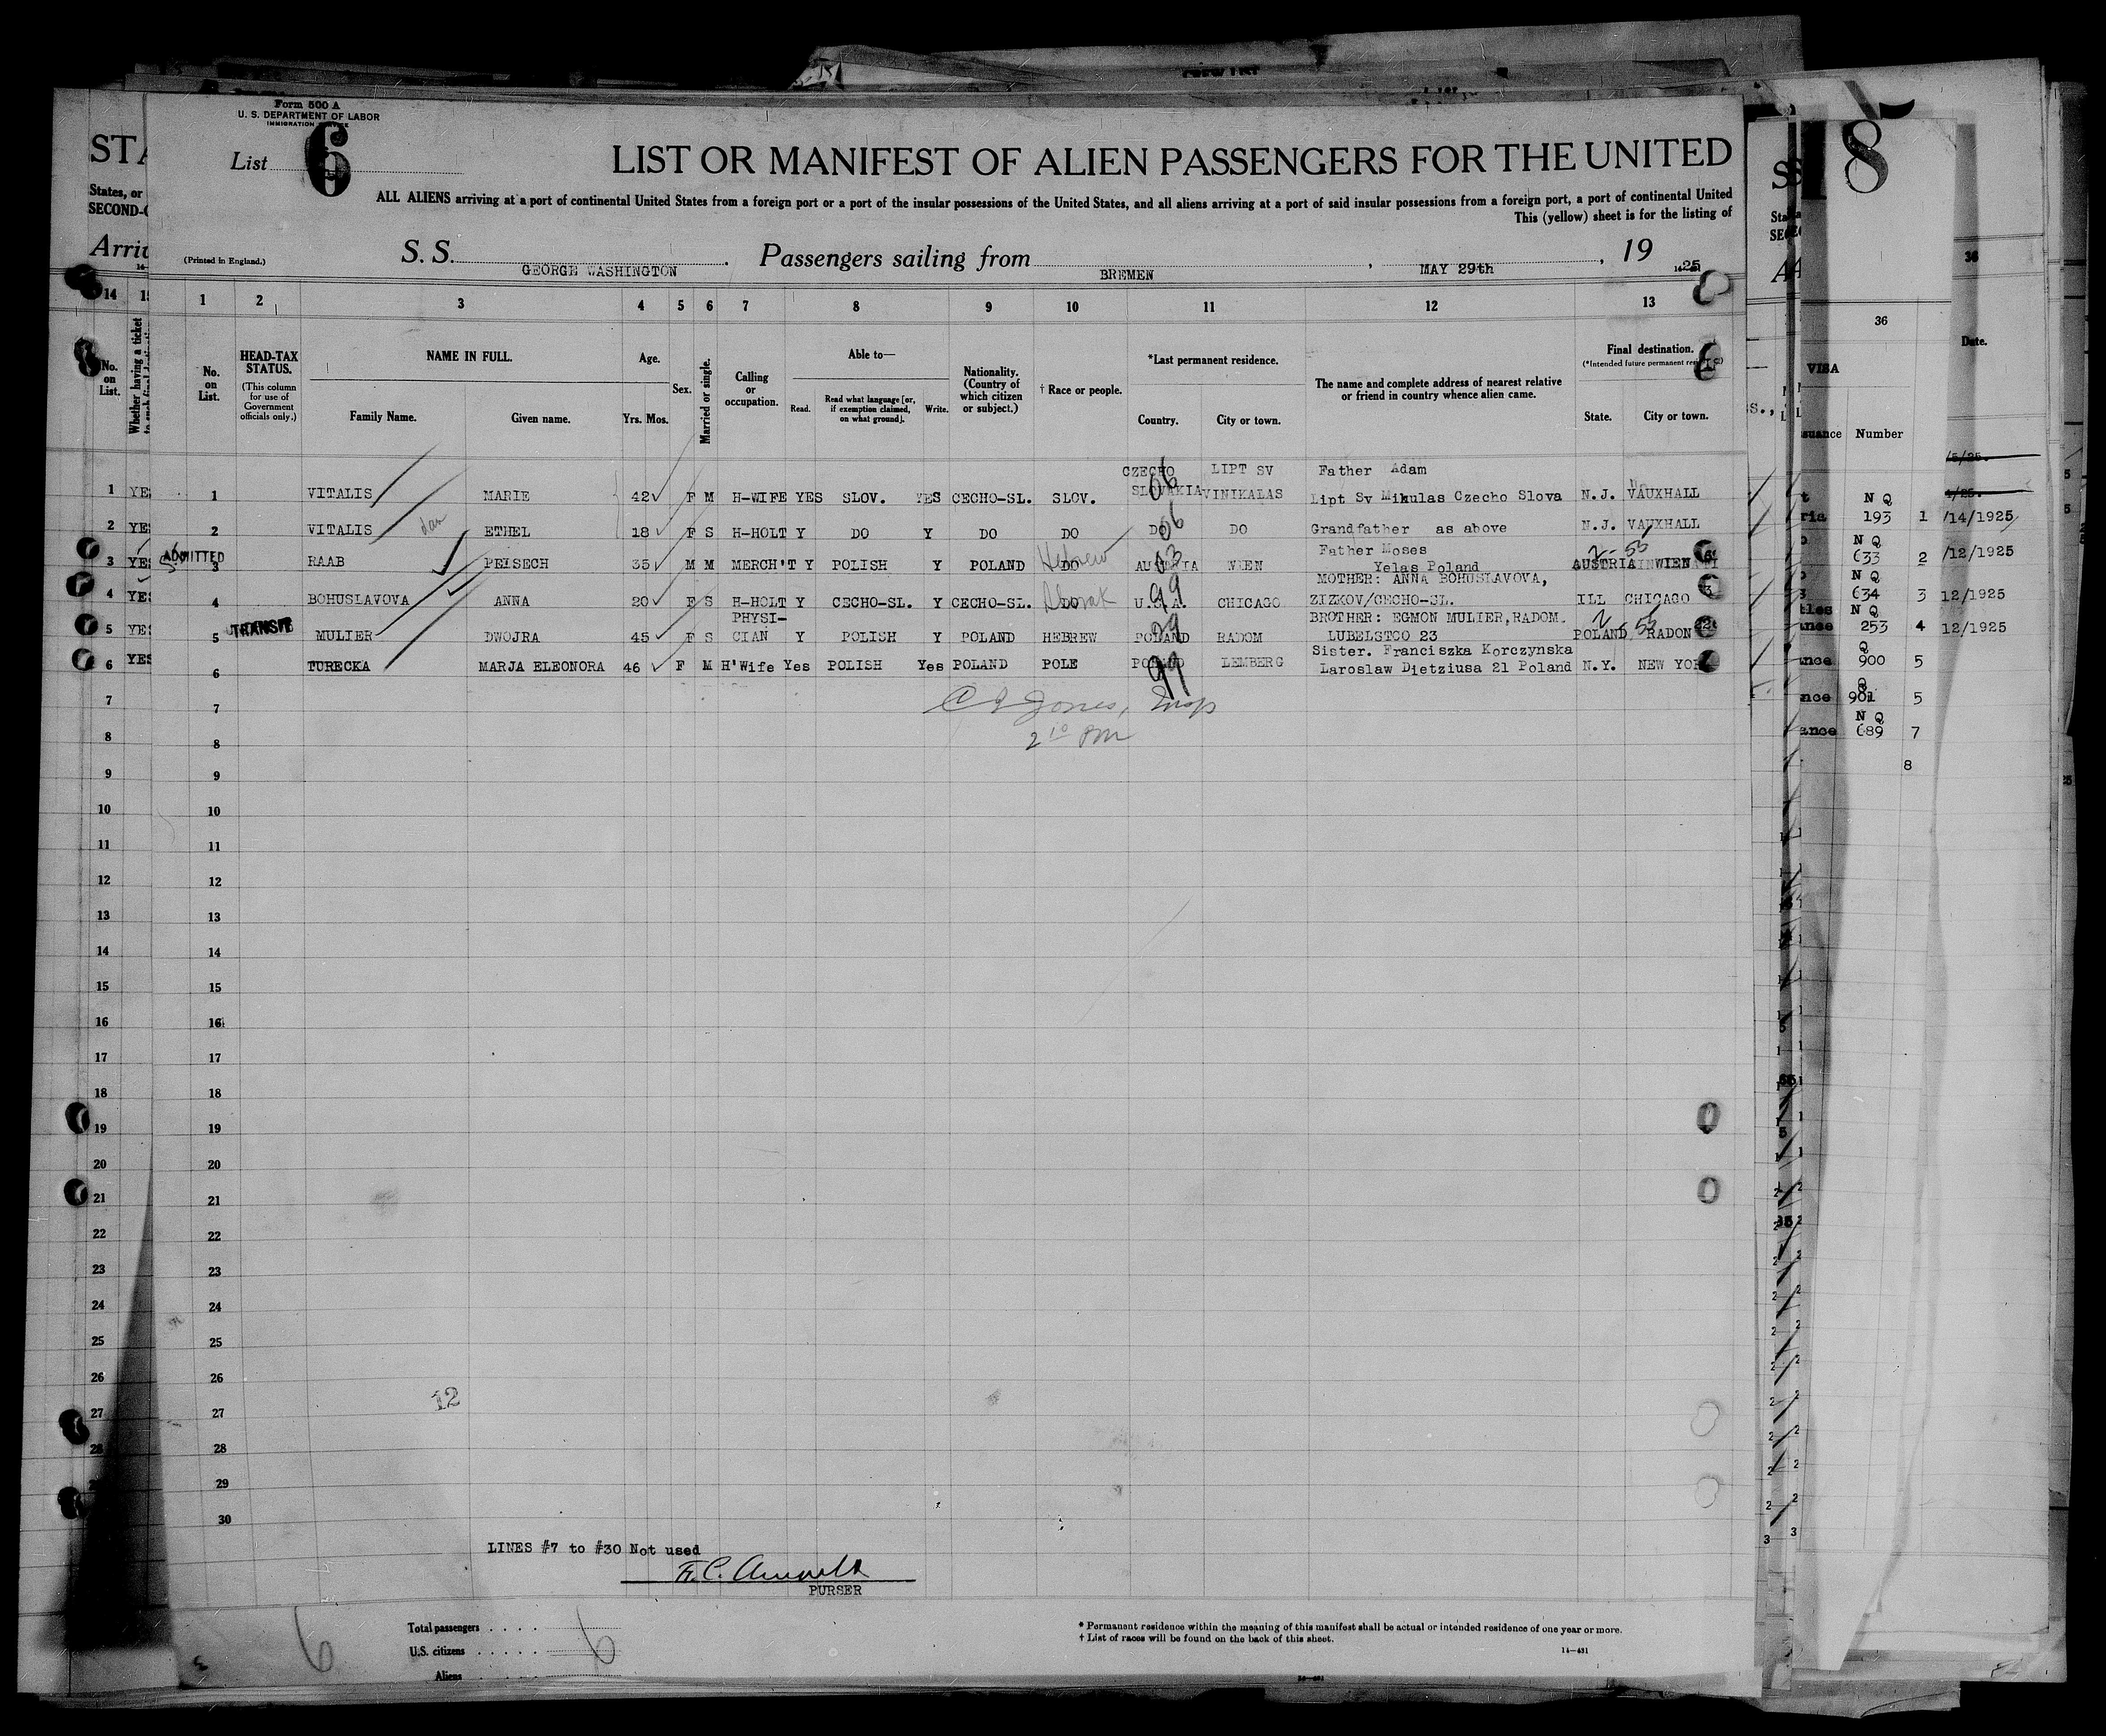 Form 500 A
U. S. DEPARTMENT OF LABOR
IMMIGRATION SERVICE
List 6
LIST OR MANIFEST OF ALIEN PASSENGERS FOR THE UNITED
ALL ALIENS arriving at a port of continental United States from a foreign port or a port of the insular possessions of the United States, and all aliens arriving at a port of said insular possessions from a foreign port, a port of continental United
This (yellow) sheet is for the listing of
(Printed in England.)
S. S. GEORGE WASHINGTON. Passengers sailing from BREMEN, MAY 29th, 19 25
1 2 3 4 5 6 7 8 9 10 11 12 13
No. on List.
HEAD-TAX STATUS.
(This column for use of Government officials only.)
NAME IN FULL.
Family Name. Given name.
Age.
Yrs. Mos.
Sex.
Married or single.
Calling or occupation.
Able to—
Read. Read what language [or, if exemption claimed, on what ground]. Write.
Nationality. (Country of which citizen or subject.)
† Race or people.
*Last permanent residence.
Country. City or town.
The name and complete address of nearest relative or friend in country whence alien came.
Final destination.
(*Intended future permanent
State. City or town.
CZECHO LIPT SV Father Adam
1 VITALIS MARIE 42 F M H-WIFE YES SLOV. YES CECHO-SL. SLOV. SLOVAKIA VINIKALAS Lipt Sv Mikulas Czecho Slova N.J. VAUXHALL
2 VITALIS ETHEL 18 F S H-HOLT Y DO Y DO DO DO DO Grandfather as above N.J. VAUXHALL
Father Moses
ADMITTED 3 RAAB PEISECH 35 M M MERCH'T Y POLISH Y POLAND DO Hebrew AUSTRIA WIEN Yelas Poland AUSTRIA WIEN
MOTHER: ANNA BOHUSLAVOVA,
4 BOHUSLAVOVA ANNA 20 F S H-HOLT Y CECHO-SL. Y CECHO-SL. DO Slovak U.S.A. CHICAGO ZIZKOV/CECHO-SL. ILL CHICAGO
PHYSI- BROTHER: EGMON MULIER, RADOM.
5 TRANSIT MULIER DWOJRA 45 F S CIAN Y POLISH Y POLAND HEBREW POLAND RADOM LUBELSTCO 23 POLAND RADON
Sister. Franciszka Korczynska
6 TURECKA MARJA ELEONORA 46 F M H'Wife Yes POLISH Yes POLAND POLE POLAND LEMBERG Laroslaw Djetziusa 21 Poland N.Y. NEW YOR
7 C J Jones, Insp
8 2 10 PM
9
10
11
12
13
14
15
16
17
18
19
20
21
22
23
24
25
26
27
28
29
30
12
LINES #7 to #30 Not used
PURSER
Total passengers
U.S. citizens
Aliens
6 6
* Permanent residence within the meaning of this manifest shall be actual or intended residence of one year or more.
† List of races will be found on the back of this sheet.
14—431
8
36
VISA
Number
Date.
N Q
193 1 /14/1925
N Q
633 2 /12/1925
N Q
634 3 12/1925
N Q
253 4 12/1925
Q
900 5
901 5
N Q
689 7
8